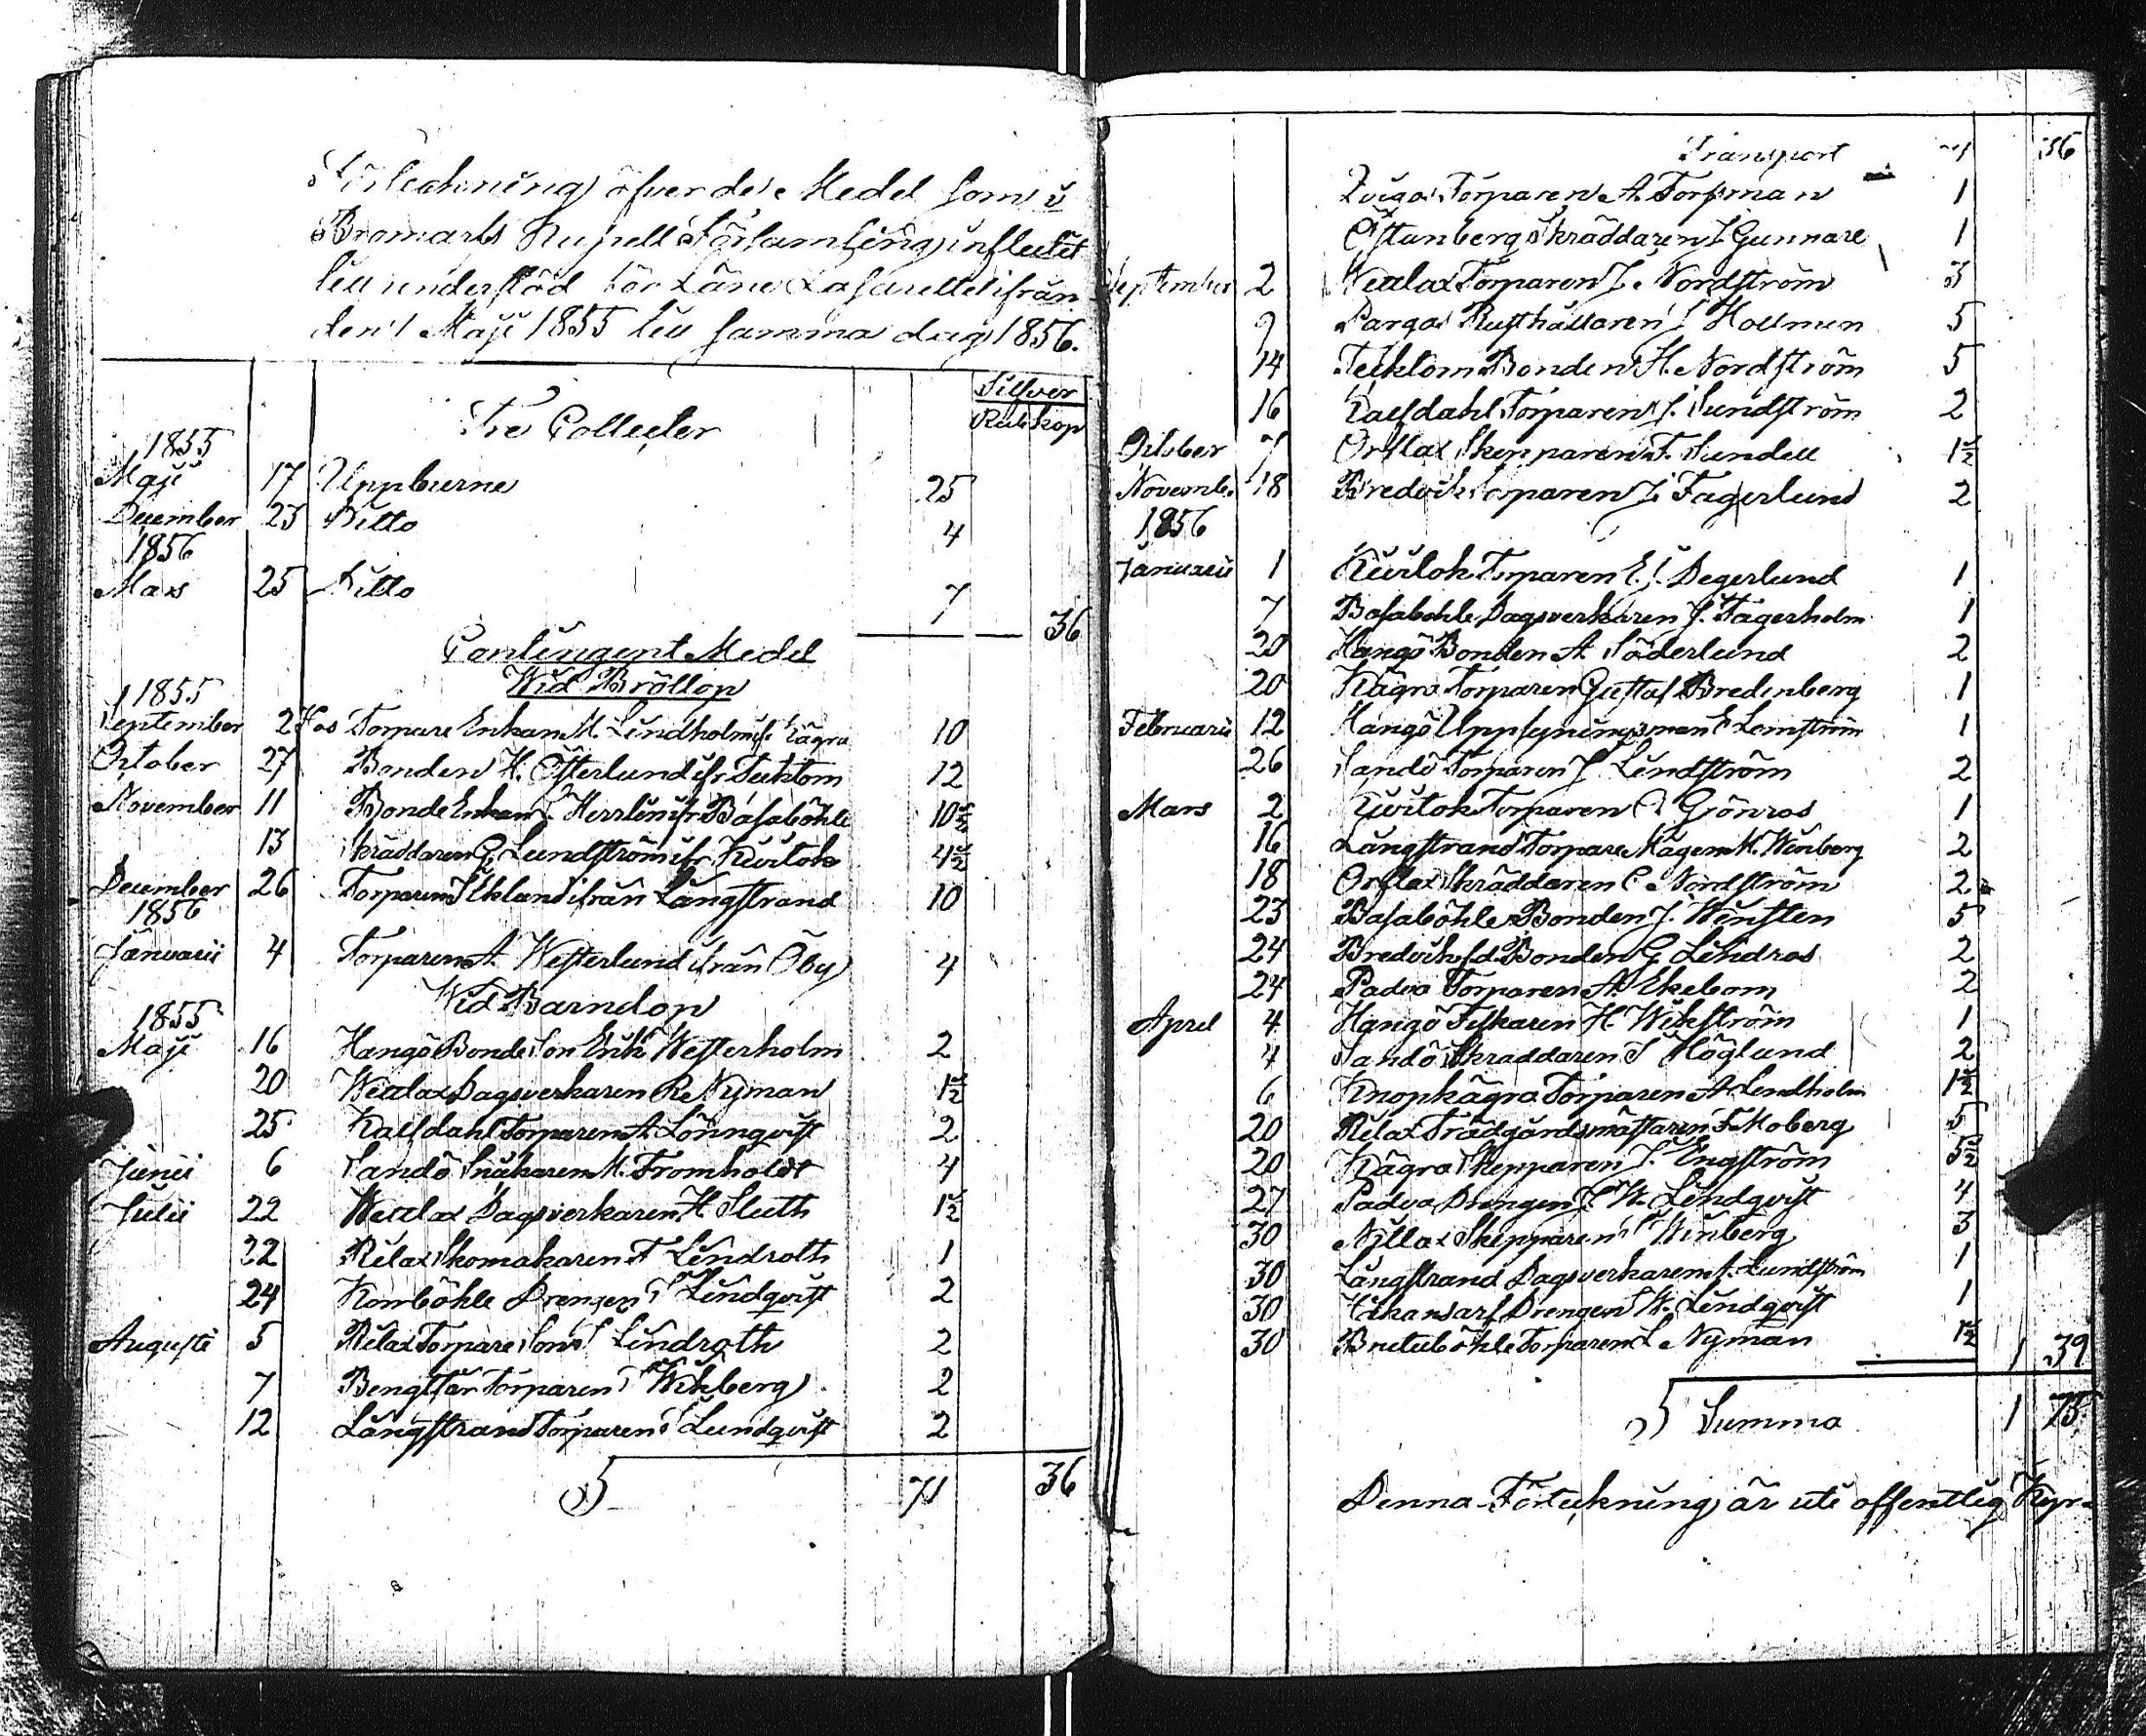 Förteckning öfver de Medel som i
Bromarfs Kapell Församling influtit
till understöd för Läns Lasarettet ifrån
den 1 Maji 1855 till samma dag 1856.
Silfver
Tre Collecter Rub Kop
1855
Maji 17 Uppburne 25
December 23 Ditto 4
1856
Mars 25 Ditto 7
36
Contingent Medel
Wid Bröllop
1855
September 2 Hos Torpare Enkan M. Lindholm ifr Kägra 10
October 27 Bonden H. Österlund ifr Tecktom 12
November 11 Bonde Enkan Herrlin ifr Basaböhle 10½
13 Skräddaren G. Lundström ifr Kuilok 4½
December 26 Torparen J Eklund ifrån Långstrand 10
1856
Januarii 4 Torparen A. Westerlund ifrån Öby 4
Wid Barndop
1855
Maji 16 Hangö Bonde Son Erik Westerholm 2
20 Wättlax Dagsverkaren R. Nyman 1½
25 Kalfdahl Torparen A. Lönnqvist 2
Junii 6 Sandö Snickaren M. Fromholdt 4
Julii 22 Wättlax Dagsverkaren H. Sluth 1½
22 Rilax Skomakaren F Lindroth 1
24 Kombôhle Drengen Lindqvist 2
Augusti 5 Rilax Torpare Son Lindroth 2
7 Bengttår Torparen Wikberg 2
12 Långstrand Torparen Lundqvist 2
71 36
Transport 71 36
Torparen A. Torpman 1
Östanberg Skräddaren J Gunnare 1
September 2 Wättlax Torparen J. Nordström 3
9 Parga Rusthållaren J Hollmen 5
14 Tecktom Bonden H. Nordström 5
16 Kalfdahl Torparen J. Sundström 2
October 7 Orslax Skepparen F. Sundell 1½
Novemb. 18 Bredvik Torparen J. Fagerlund 2
1856
Januarii 1 Kuilok Torparen E. J. Degerlund 1
7 Basaböhle Dagsverkaren J. Fagerholm 1
20 Hangö Bonden A Söderlund 2
20 Kägra Torparen Gustaf Bredenberg 1
Februarii 12 Hangö Uppsyningsman E Lemström 1
26 Sandö Torparen J. Lindström 2
Mars 2 Kuilok Torparen Grönros 1
16 Långstrand Torpare Mågen M. Winberg 2
18 Orslax Skräddaren C. Nordström 2
23 Basaböhle Bonden J. Winsten 5
24 Bredvik fd. Bonden G Lindros 2
24 Padva Torparen A. Ekebom 2
April 4 Hangö Fiskaren H. Wikström 1
4 Sandö Skräddaren S Höglund 2
6 Knopkägra Torparen A. Lindholm 1½
20 Rilax Trädgårdsmästaren F. Moberg 5
20 Kägra Skepparen J. Engström 5½
27 Padva Drengen J. W. Lindqvist 4
30 Nillax Skepparen Winberg 3
30 Långstrand Dagsverkaren A. Lundström 1
30 Drengen W. Lindqvist 1
30 Bruteböhle Torparen L Nyman 1½
1 39
Summa 1 75
Denna Förteckning är uti offentlig Kyr-